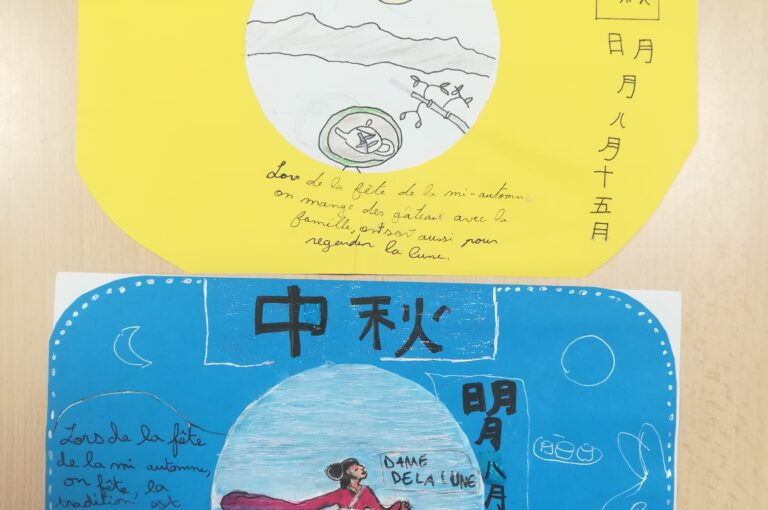 明月八月十五月
Lors de la fête de la mi-automne
on mange des gâteaux avec la
famille, on sort aussi pour
regarder la lune.
中秋
明月八月
Lors de la fête
de la mi automne,
on fête, la
tradition est
DAME
DE LA LUNE